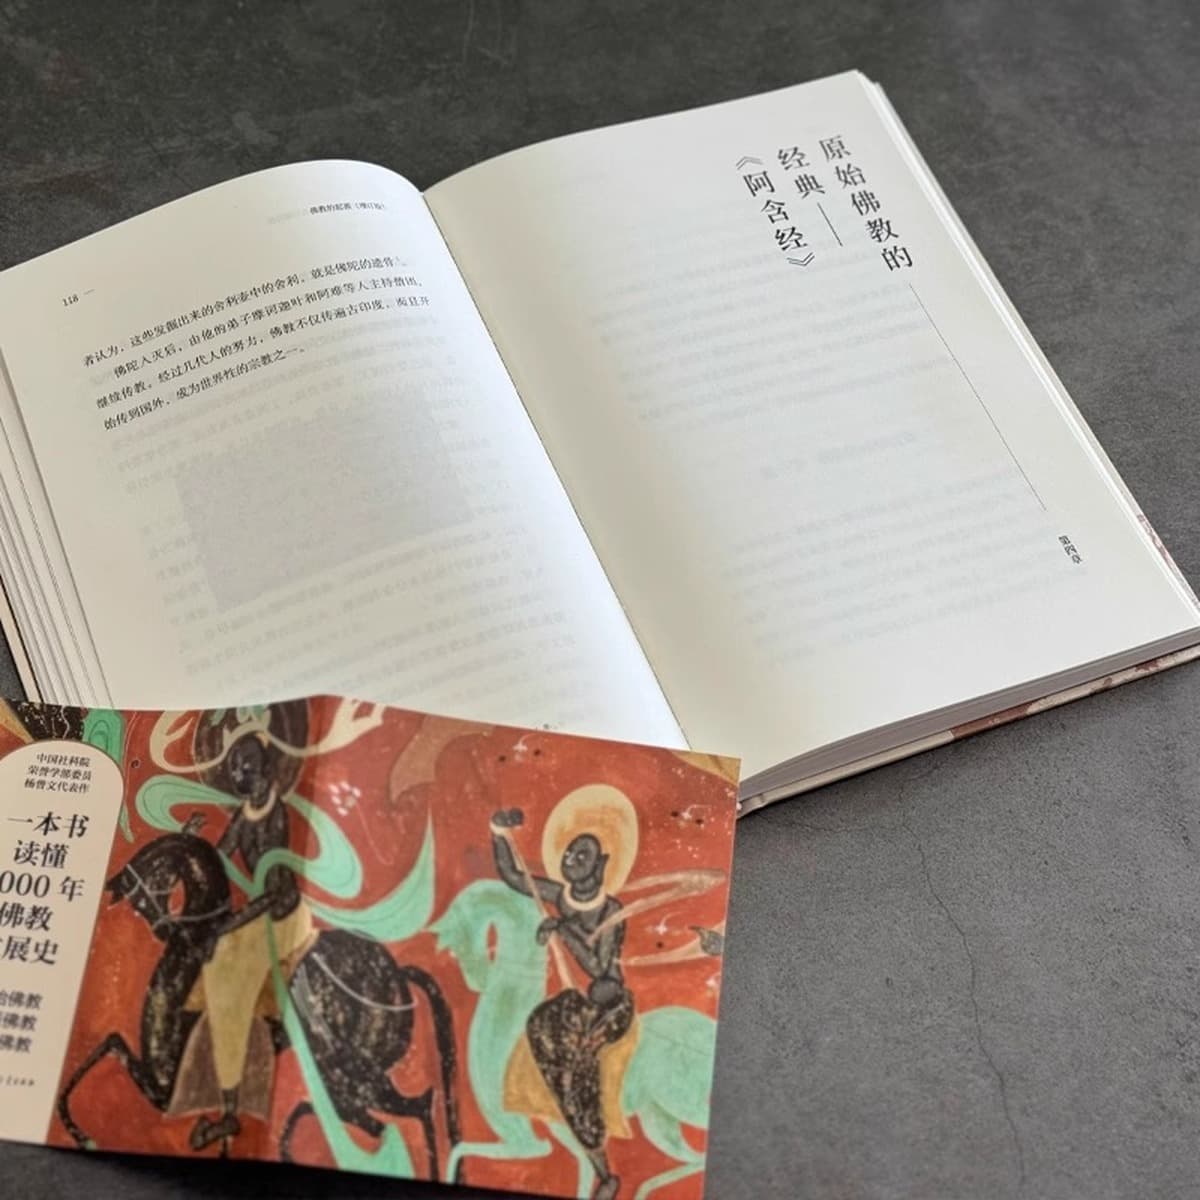 佛教的起源（增订版）
118
者认为，这些发掘出来的舍利壶中的舍利，就是佛陀的遗骨。
佛陀入灭后，由他的弟子摩诃迦叶和阿难等人主持僧团，
继续传教。经过几代人的努力，佛教不仅传遍古印度，而且开
始传到国外，成为世界性的宗教之一。
原始佛教的
经典——
《阿含经》
第四章
中国社科院
荣誉学部委员
杨曾文代表作
一本书
读懂
000年
佛教
展史
始佛教
佛教
佛教